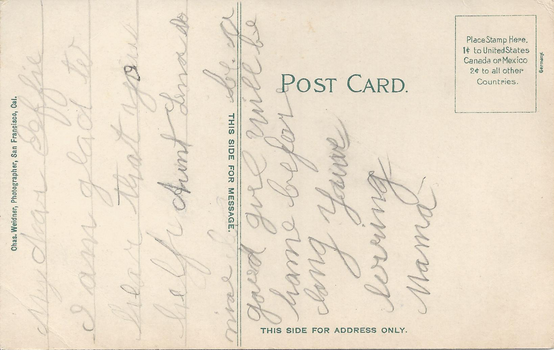 POST CARD.
Place Stamp Here.
1¢ to United States
Canada or Mexico
2¢ to all other
Countries.
Germany.
Chas. Weidner, Photographer, San Francisco, Cal.
THIS SIDE FOR MESSAGE.
THIS SIDE FOR ADDRESS ONLY.
My dear Effie
I am glad to
hear that you
help Aunt
nice be a
good girl will be
home before
long Youre
loving
Mama